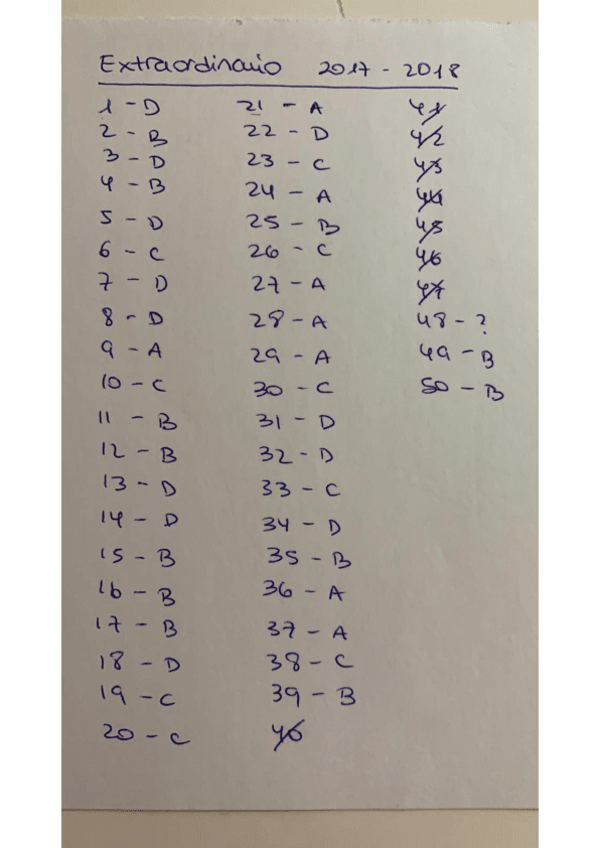 Extraordinario 2017 - 2018
1 - D
2 - B
3 - D
4 - B
5 - D
6 - C
7 - D
8 - D
9 - A
10 - C
11 - B
12 - B
13 - D
14 - D
15 - B
16 - B
17 - B
18 - D
19 - C
20 - C
21 - A
22 - D
23 - C
24 - A
25 - B
26 - C
27 - A
28 - A
29 - A
30 - C
31 - D
32 - D
33 - C
34 - D
35 - B
36 - A
37 - A
38 - C
39 - B
40
41
42
43
44
45
46
47
48 - ?
49 - B
50 - B